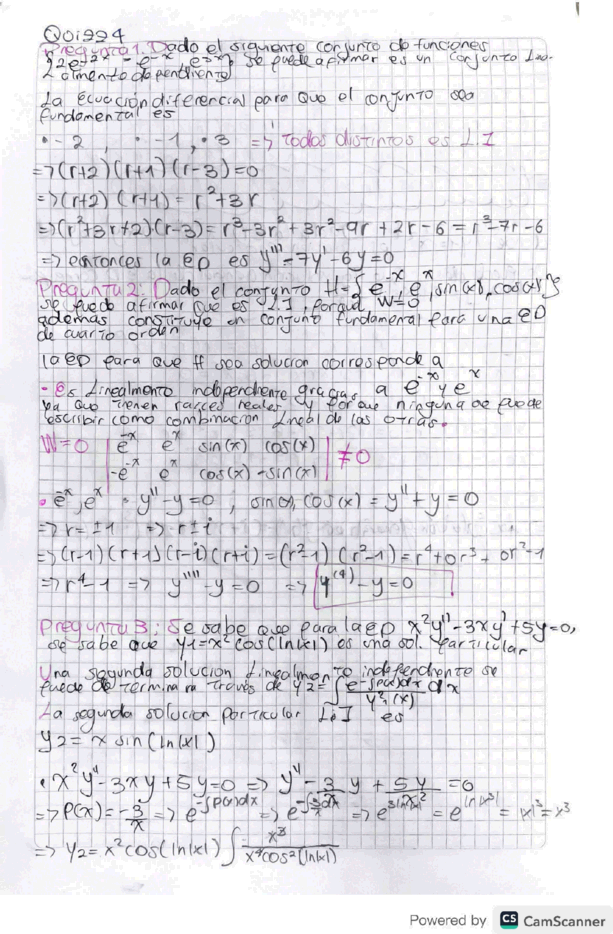 Quiz 4
Pregunta 1. Dado el siguiente conjunto de funciones
{2e^-2x, -e^-x, e^3x}, se puede afirmar es un conjunto Line
almente dependiente
La ecuación diferencial para que el conjunto sea
fundamental es
• -2, • -1, • 3 => todos distintos es L.I
=> (r+2)(r+1)(r-3)=0
=> (r+2)(r+1) = r²+3r
=> (r²+3r+2)(r-3) = r³-3r²+3r²-9r+2r-6 = r³-7r-6
=> entonces la ED es y'''-7y'-6y=0
Pregunta 2: Dado el conjunto H={e^-x, e^x, sin(x), cos(x)}
se puede afirmar que es L.I, porque W≠0
además constituye en conjunto fundamental para una ED
de cuarto orden
la ED para que H sea solucion corresponde a
- es Linealmente independiente gracias a e^-x y e^x
ya que tienen raices reales y porque ninguna se puede
escribir como combinacion Lineal de las otras.
W=0 | e^-x e^x sin(x) cos(x) | ≠0
| -e^-x e^x cos(x) -sin(x) |
• e^-x, e^x • y''-y=0, sin(x), cos(x) = y''+y=0
=> r=±1 => r±i
=> (r-1)(r+1)(r-i)(r+i) = (r²-1)(r²-1) = r⁴+0r³+0r²-1
=> r⁴-1 => y''''-y=0 => y^(4)-y=0
Pregunta 3: Se sabe que para la ED x²y''-3xy'+5y=0,
se sabe que y1=x²cos(ln|x|) es una sol. particular
Una segunda solucion Linealmente independiente se
puede determinar a través de y2=∫ e^-∫p(x)dx / y²1(x) dx
La segunda solucion particular L.I es
y2= x sin(ln|x|)
• x²y''-3xy+5y=0 => y''-3/x y + 5y/x² =0
=> P(x)=-3/x => e^-∫p(x)dx => e^-∫-3/x dx => e^3ln|x| = e^ln|x³| = |x|³=x³
=> y2= x²cos(ln|x|) ∫ x³ / x⁴cos²(ln|x|)
Powered by CS CamScanner